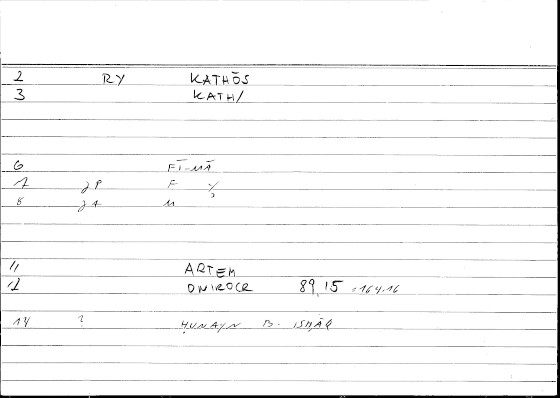 2 RY KATHŌS
3 KATH/
6 FĪ-MĀ
7 F
8 M
11 ARTEM
12 ONIROCR 89,15 = 164.16
14 ? ḤUNAYN B. ISḤĀQ